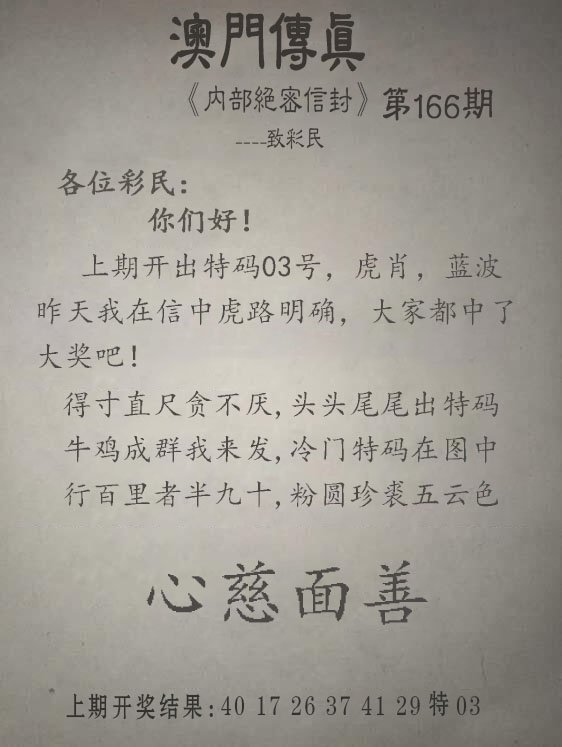 澳門傳眞
《内部絕密信封》第166期
----致彩民
各位彩民：
你们好！
上期开出特码03号，虎肖，蓝波
昨天我在信中虎路明确，大家都中了
大奖吧！
得寸直尺贪不厌,头头尾尾出特码
牛鸡成群我来发,冷门特码在图中
行百里者半九十,粉圆珍裘五云色
心慈面善
上期开奖结果:40 17 26 37 41 29 特 03